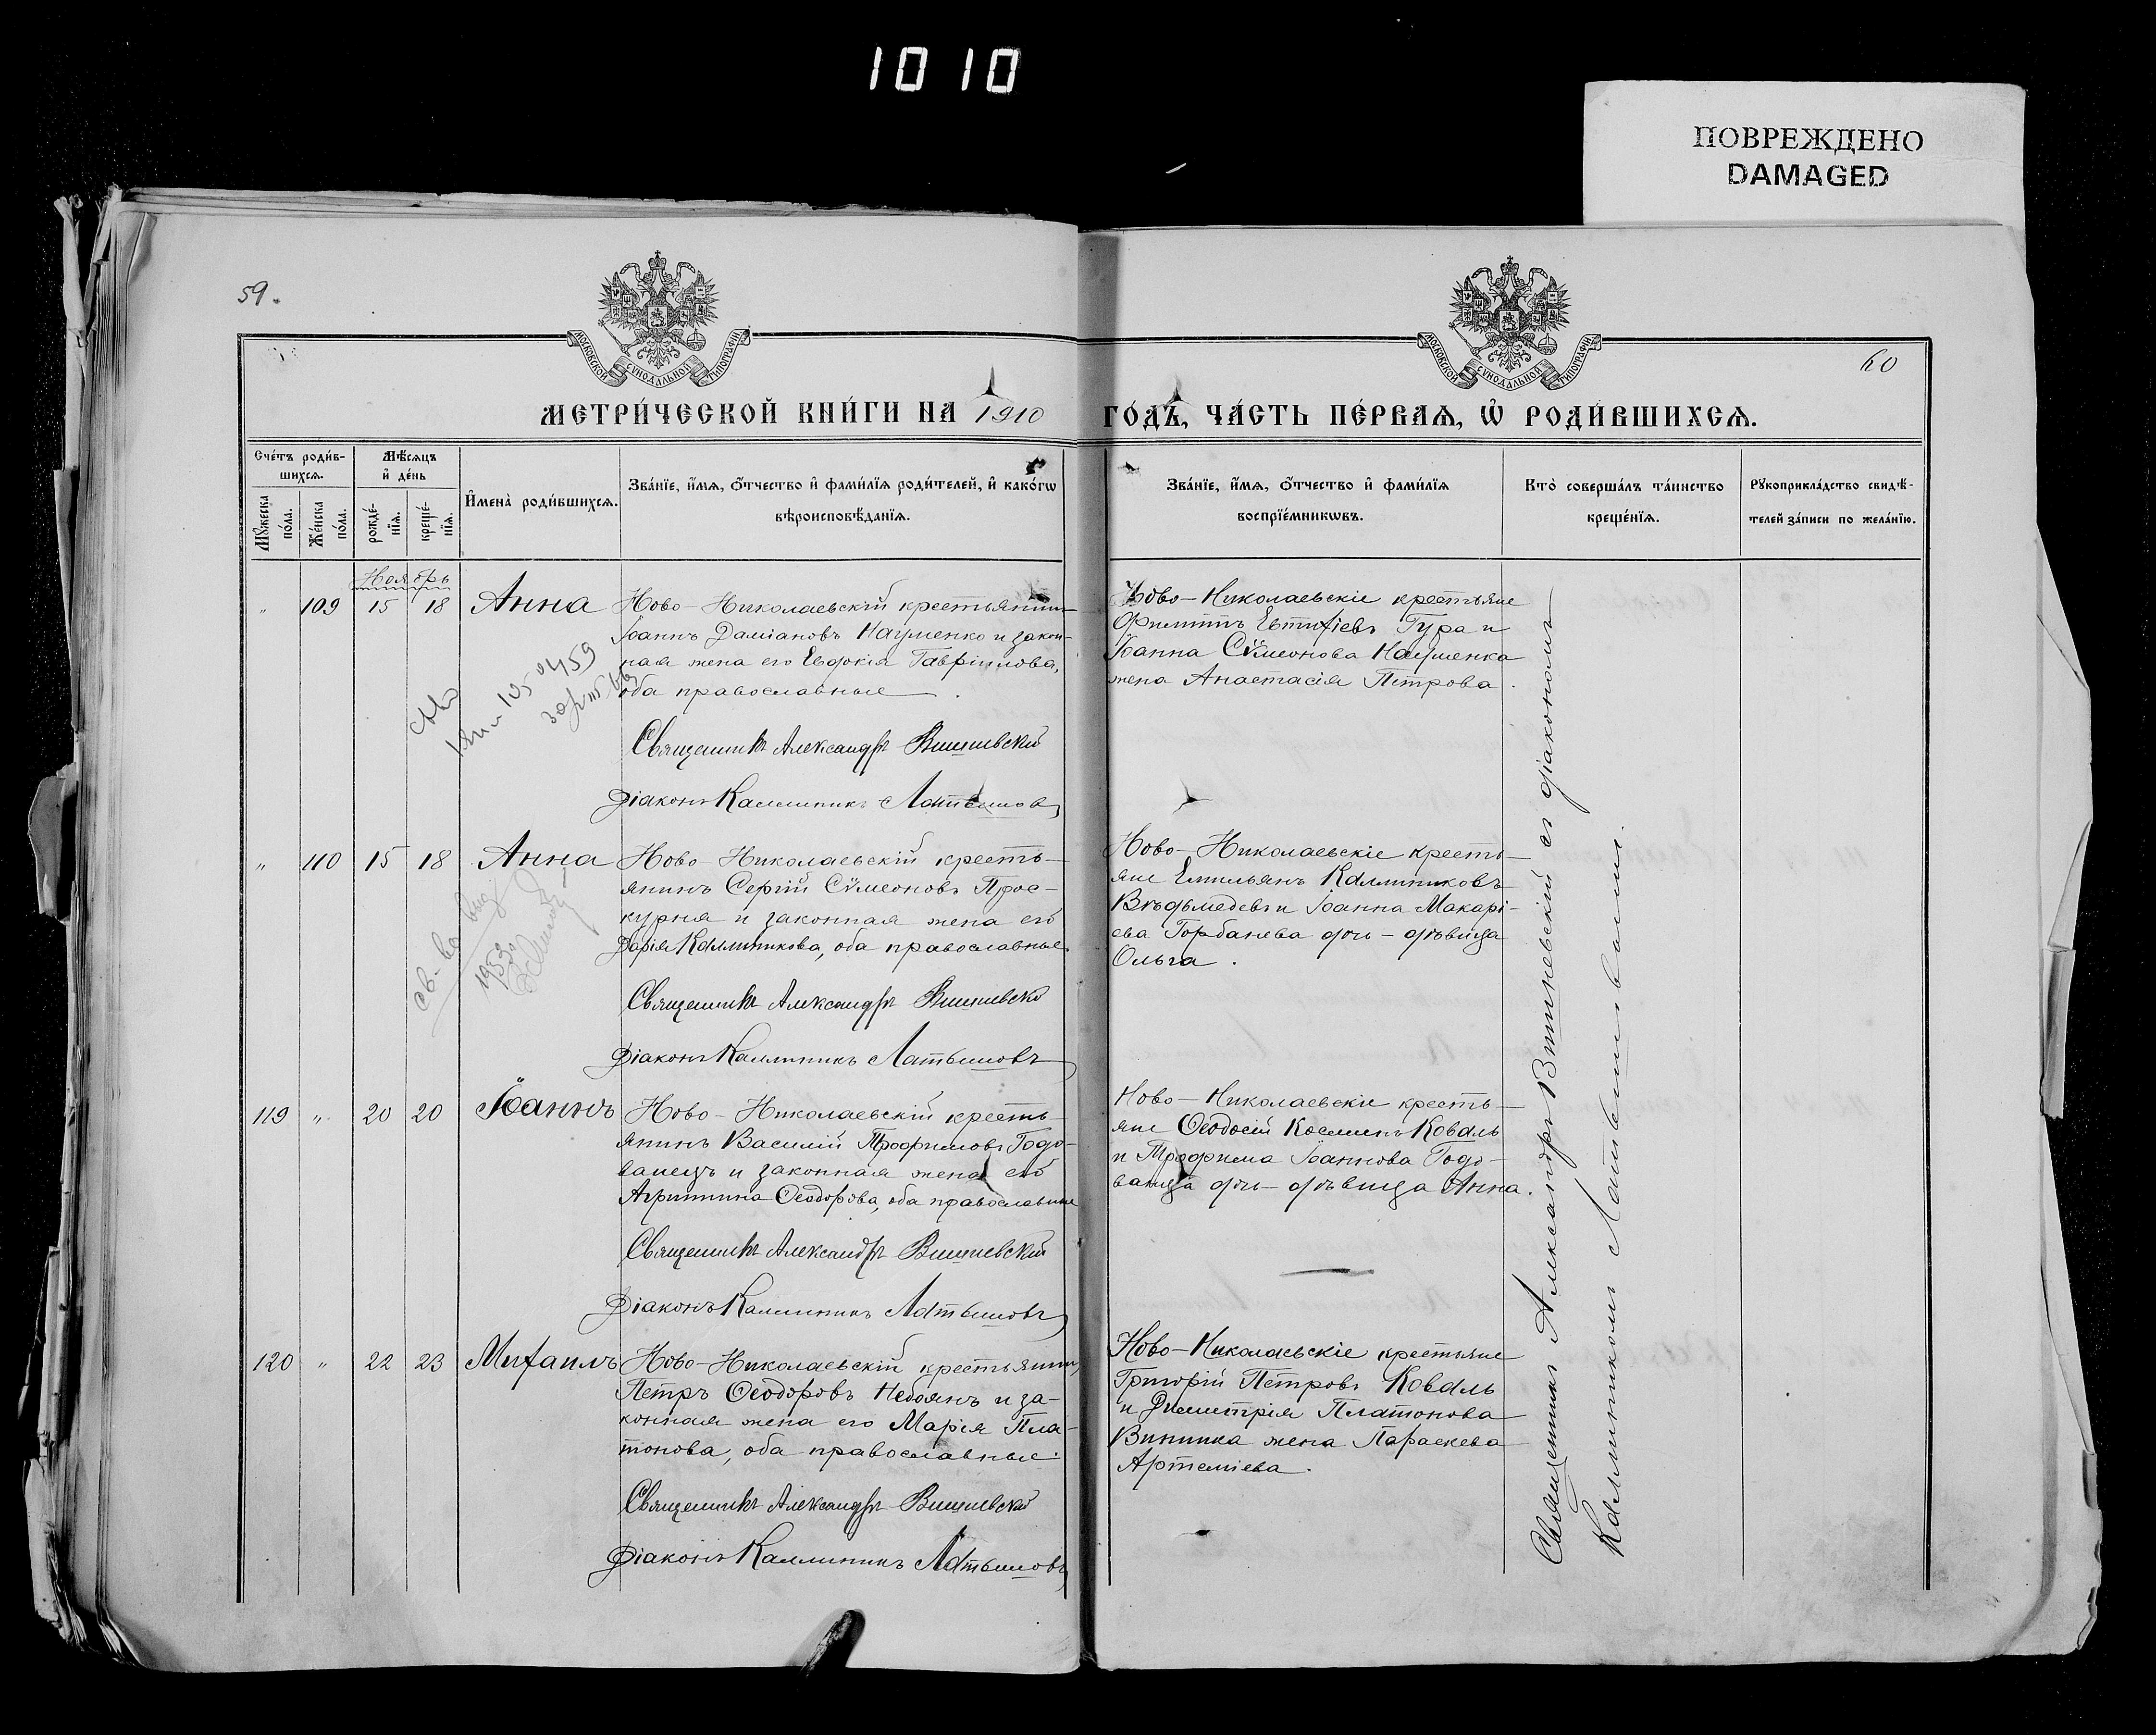 1010
ПОВРЕЖДЕНО
DAMAGED
59.
МОСКОВСКОЙ СУНОДАЛЬНОЙ ТИПОГРАФІИ
МОСКОВСКОЙ СУНОДАЛЬНОЙ ТИПОГРАФІИ
60
МЕТРИ́ЧЕСКОЙ КНИ́ГИ НА 1910 ГО́ДЪ, ЧА́СТЬ ПЕ́РВАѦ, Ѡ҆ РОДИ́ВШИХСѦ.
Сче́тъ роди́в-
шихсѧ.
Мꙋ́жеска по́ла.
Же́нска по́ла.
Мѣ́сѧцъ
и҆ де́нь
рожде́-нїѧ.
креще́-нїѧ.
И҆мена̀ роди́вшихсѧ.
Зва́нїе, и҆́мѧ, ѻ҆́тчество и҆ фами́лїѧ роди́телей, и҆ како́гѡ
вѣроисповѣ́данїѧ.
Зва́нїе, и҆́мѧ, ѻ҆́тчество и҆ фами́лїѧ
воспрїе́мникѡвъ.
Кто̀ соверша́лъ та́инство
креще́нїѧ.
Рꙋкоприкла́дство свидѣ́-
телей за́писи по жела́нїю.
Ноябрь
" 109 15 18 Анна
Ново-Николаевскій крестьянинъ
Іоаннъ Даміановъ Науменко и закон-
ная жена его Евдокія Гавріилова,
оба православные.
Священникъ Александръ Вишневскій
Діаконъ Каллиникъ Латышовъ
Ново-Николаевскіе крестьяне
Филиппъ Евтихіевъ Гура и
Іоанна Сѵмеонова Науменка
жена Анастасія Петрова.
" 110 15 18 Анна
Ново-Николаевскій кресть-
янинъ Сергій Сѵмеоновъ Прос-
курня и законная жена его
Дарія Каллиникова, оба православные.
Священникъ Александръ Вишневскій
Діаконъ Каллиникъ Латышовъ
Ново-Николаевскіе кресть-
яне Емильянъ Каллиниковъ
Вѣдьмедевъ и Іоанна Макарі-
ева Горбанева дочь-дѣвица
Ольга.
св-во выд
195
119 " 20 20 Іоаннъ
Ново-Николаевскій кресть-
янинъ Василій Трофимовъ Годо-
ванецъ и законная жена его
Агриппина Ѳеодорова, оба православные
Священникъ Александръ Вишневскій
Діаконъ Каллиникъ Латышовъ
Ново-Николаевскіе кресть-
яне Ѳеодосій Косминъ Коваль
и Трофима Іоаннова Годо-
ванца дочь-дѣвица Анна.
120 " 22 23 Михаилъ
Ново-Николаевскій крестьянинъ
Петръ Ѳеодоровъ Небоянъ и за-
конная жена его Марія Пла-
тонова, оба православные.
Священникъ Александръ Вишневскій
Діаконъ Каллиникъ Латышовъ
Ново-Николаевскіе крестьяне
Григорій Петровъ Коваль
и Димитрія Платонова
Винника жена Параскева
Артеміева.
Священникъ Александръ Вишневскій съ діакономъ
Каллиникомъ Латышовымъ.